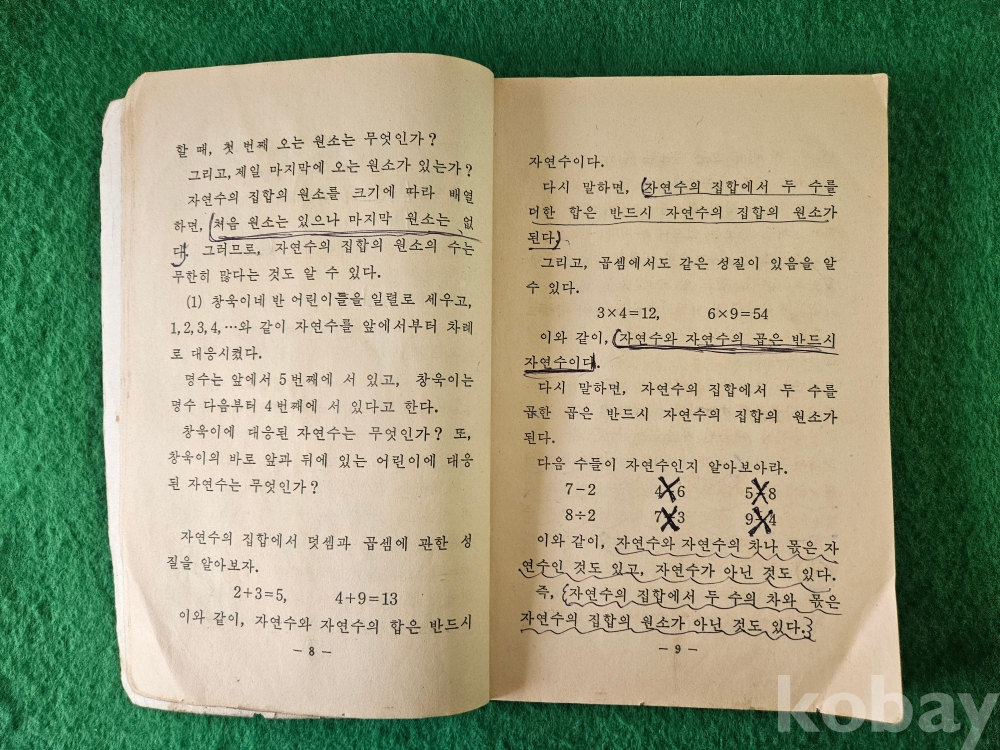 할 때, 첫 번째 오는 원소는 무엇인가?
그리고, 제일 마지막에 오는 원소가 있는가?
자연수의 집합의 원소를 크기에 따라 배열
하면, 처음 원소는 있으나 마지막 원소는 없
다. 그러므로, 자연수의 집합의 원소의 수는
무한히 많다는 것도 알 수 있다.
(1) 창욱이네 반 어린이들을 일렬로 세우고,
1, 2, 3, 4, …와 같이 자연수를 앞에서부터 차례
로 대응시켰다.
명수는 앞에서 5번째에 서 있고, 창욱이는
명수 다음부터 4번째에 서 있다고 한다.
창욱이에 대응된 자연수는 무엇인가? 또,
창욱이의 바로 앞과 뒤에 있는 어린이에 대응
된 자연수는 무엇인가?
자연수의 집합에서 덧셈과 곱셈에 관한 성
질을 알아보자.
2+3=5, 4+9=13
이와 같이, 자연수와 자연수의 합은 반드시
– 8 –
자연수이다.
다시 말하면, 자연수의 집합에서 두 수를
더한 합은 반드시 자연수의 집합의 원소가
된다.
그리고, 곱셈에서도 같은 성질이 있음을 알
수 있다.
3×4=12, 6×9=54
이와 같이, 자연수와 자연수의 곱은 반드시
자연수이다.
다시 말하면, 자연수의 집합에서 두 수를
곱한 곱은 반드시 자연수의 집합의 원소가
된다.
다음 수들이 자연수인지 알아보아라.
7-2 4-6 5÷8
8÷2 7÷3 9÷4
이와 같이, 자연수와 자연수의 차나 몫은 자
연수인 것도 있고, 자연수가 아닌 것도 있다.
즉, 자연수의 집합에서 두 수의 차와 몫은
자연수의 집합의 원소가 아닌 것도 있다.
– 9 –
kobay